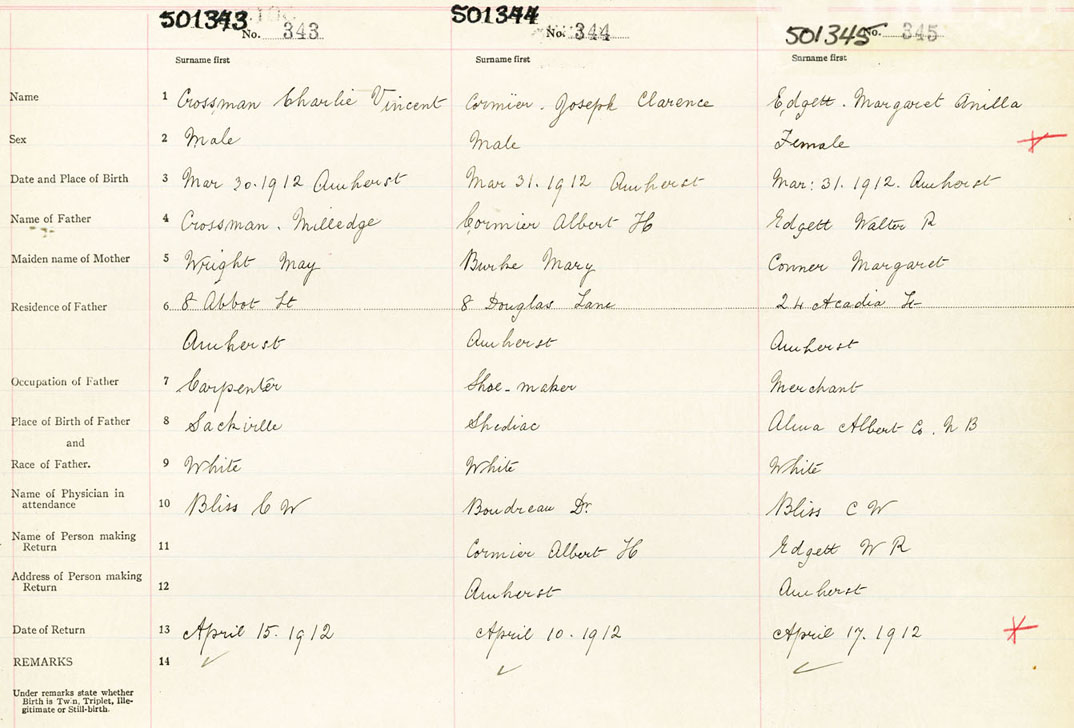 501343 No. 343 501344 No. 344 501345 No. 345
Surname first Surname first Surname first
Name 1 Crossman Charlie Vincent Cormier. Joseph Clarence Edgett. Margaret Anilla
Sex 2 Male Male Female
Date and Place of Birth 3 Mar 30. 1912 Amherst Mar 31. 1912 Amherst Mar: 31. 1912. Amherst
Name of Father 4 Crossman. Milledge Cormier Albert H Edgett Walter R
Maiden name of Mother 5 Wright May Burke Mary Conner Margaret
Residence of Father 6 8 Abbot St 8 Douglas Lane 24 Acadia St
Amherst Amherst Amherst
Occupation of Father 7 Carpenter Shoe-maker Merchant
Place of Birth of Father 8 Sackville Shediac Alma Albert Co. N B
and
Race of Father. 9 White White White
Name of Physician in
attendance 10 Bliss C W Boudreau Dr. Bliss C W
Name of Person making
Return 11 Cormier Albert H Edgett W R
Address of Person making
Return 12 Amherst Amherst
Date of Return 13 April 15. 1912 April 10. 1912 April 17. 1912
REMARKS 14
Under remarks state whether
Birth is Twin, Triplet, Ille-
gitimate or Still-birth.